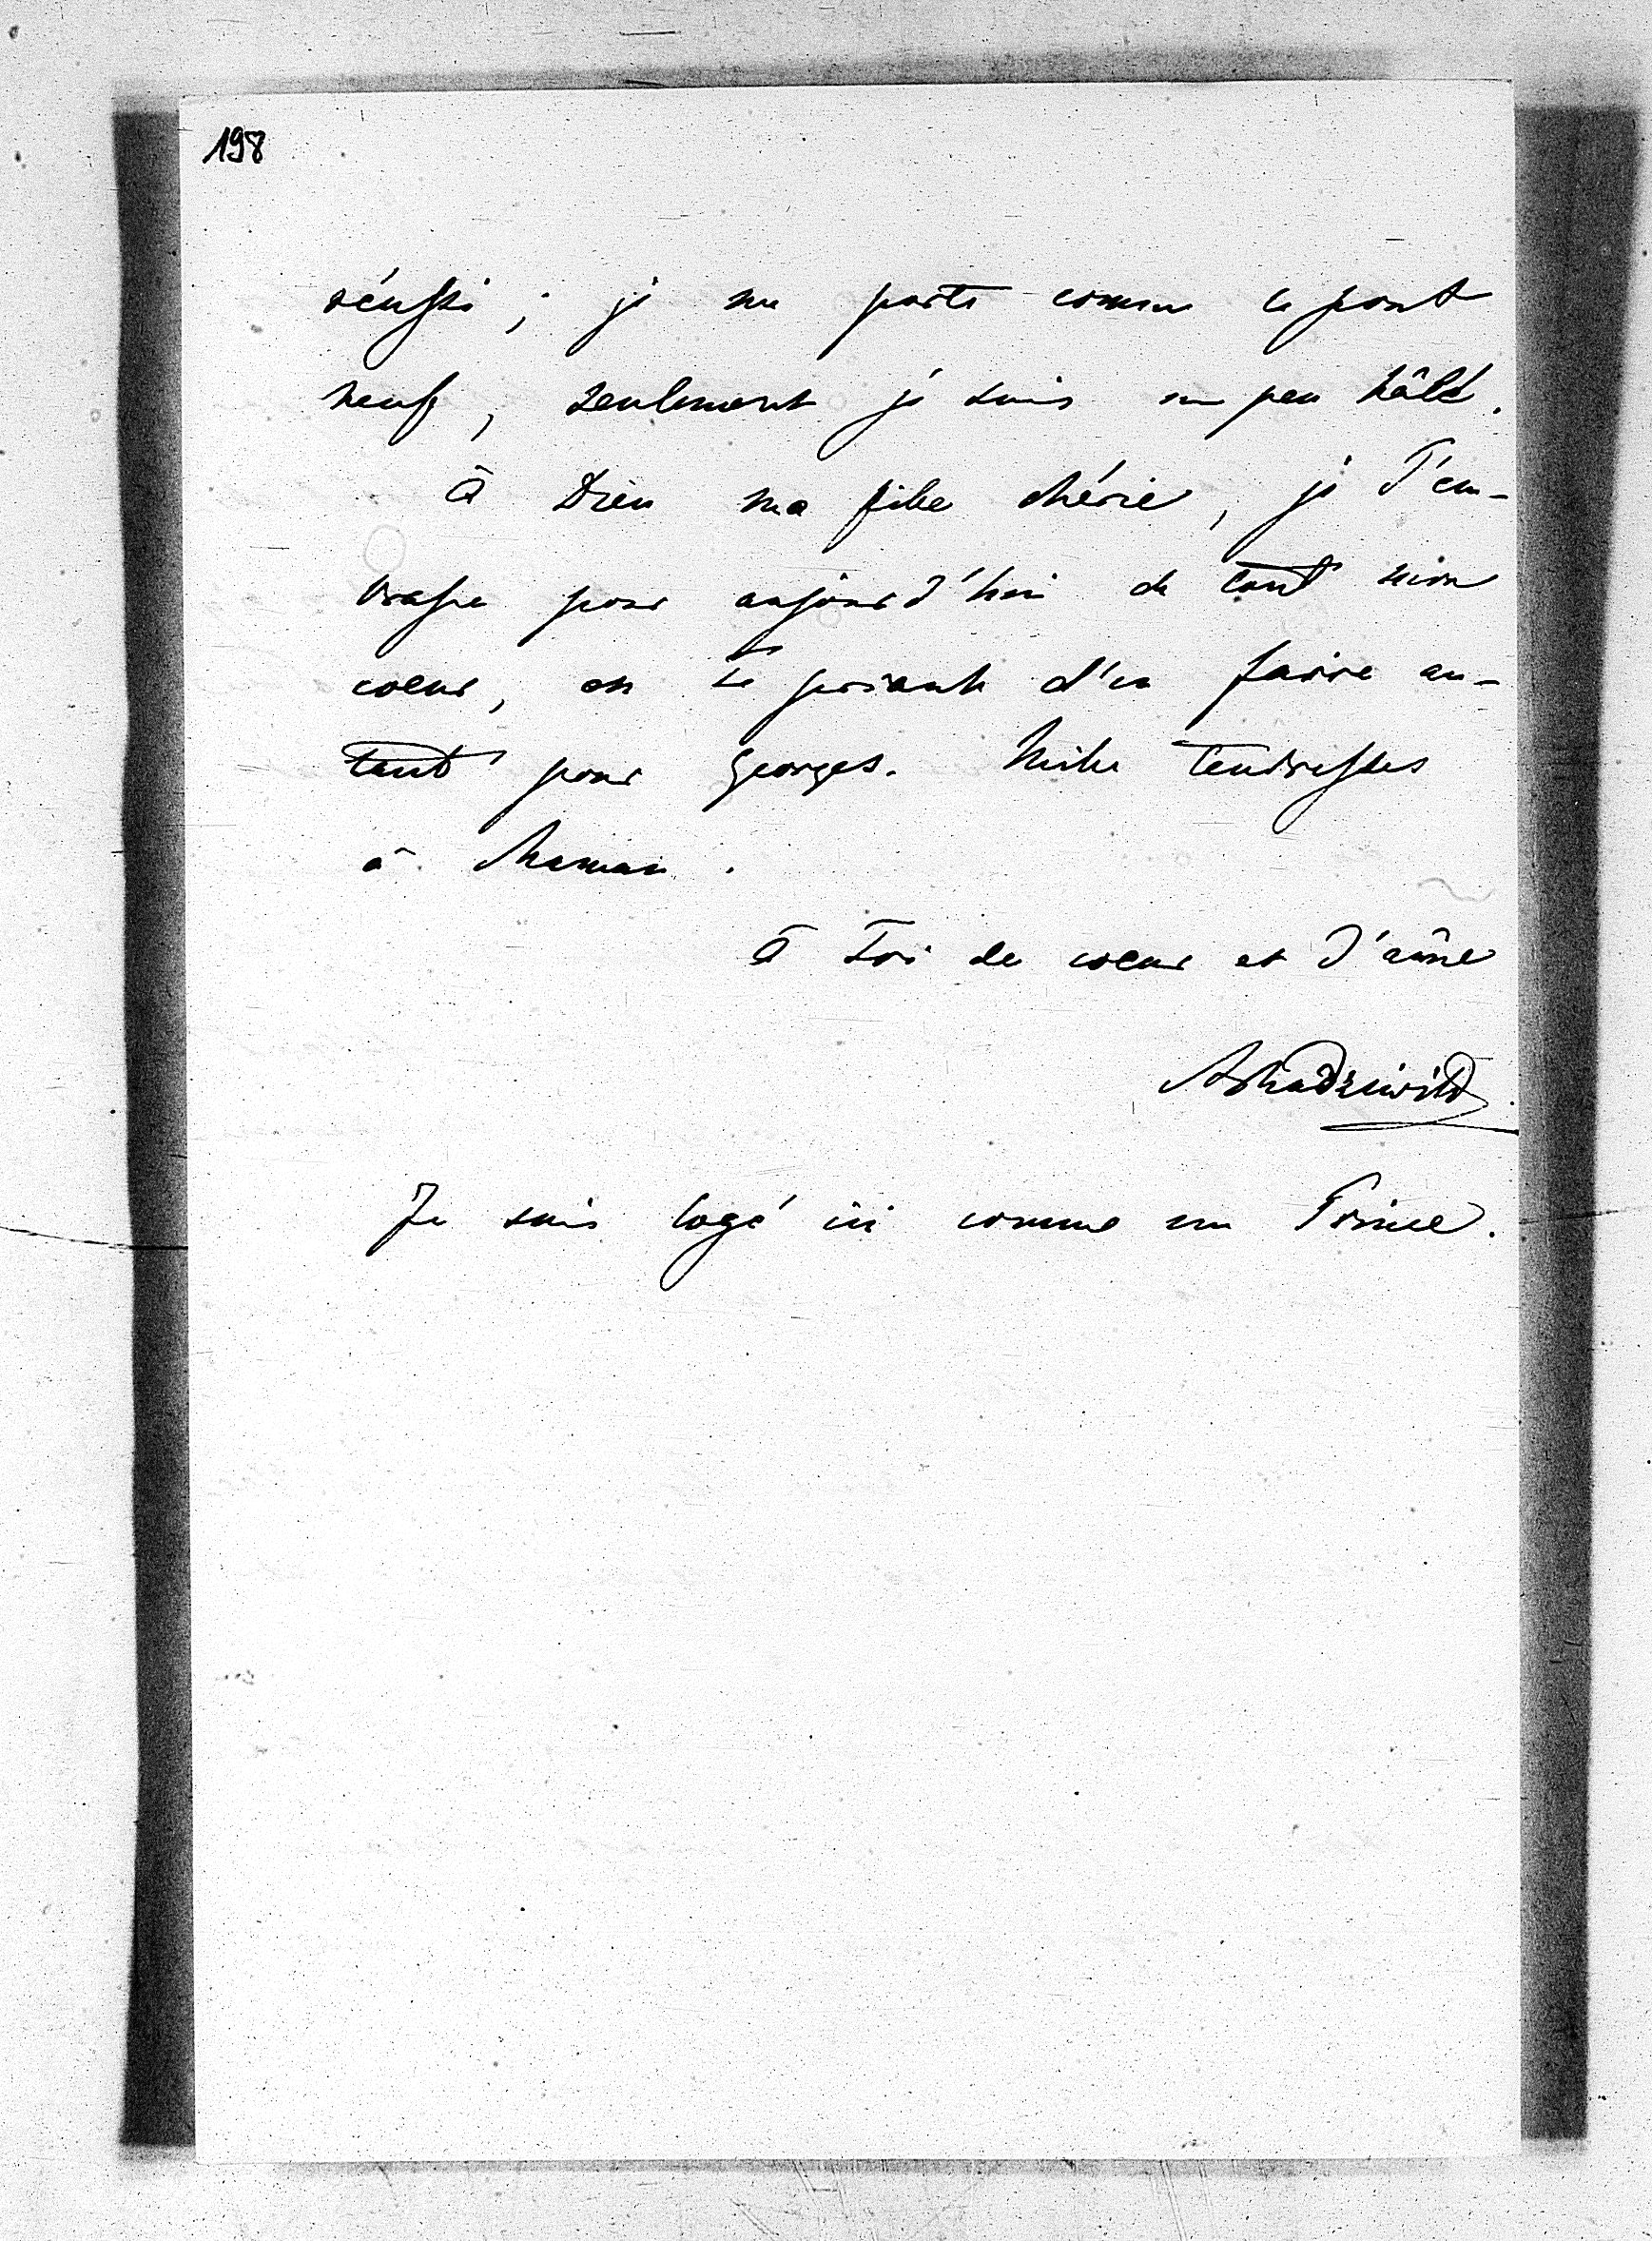 198
réussi ; je me porte comme le pont
neuf, seulement je suis un peu hâlé.
À Dieu ma fille chérie, je T'em-
brasse pour aujourd'hui de tout mon
coeur, en Te priant d'en faire au-
tant pour Georges. Mille tendresses
à Maman.
À Toi de coeur et d'âme
ARadziwill
Je suis logé ici comme un Prince.